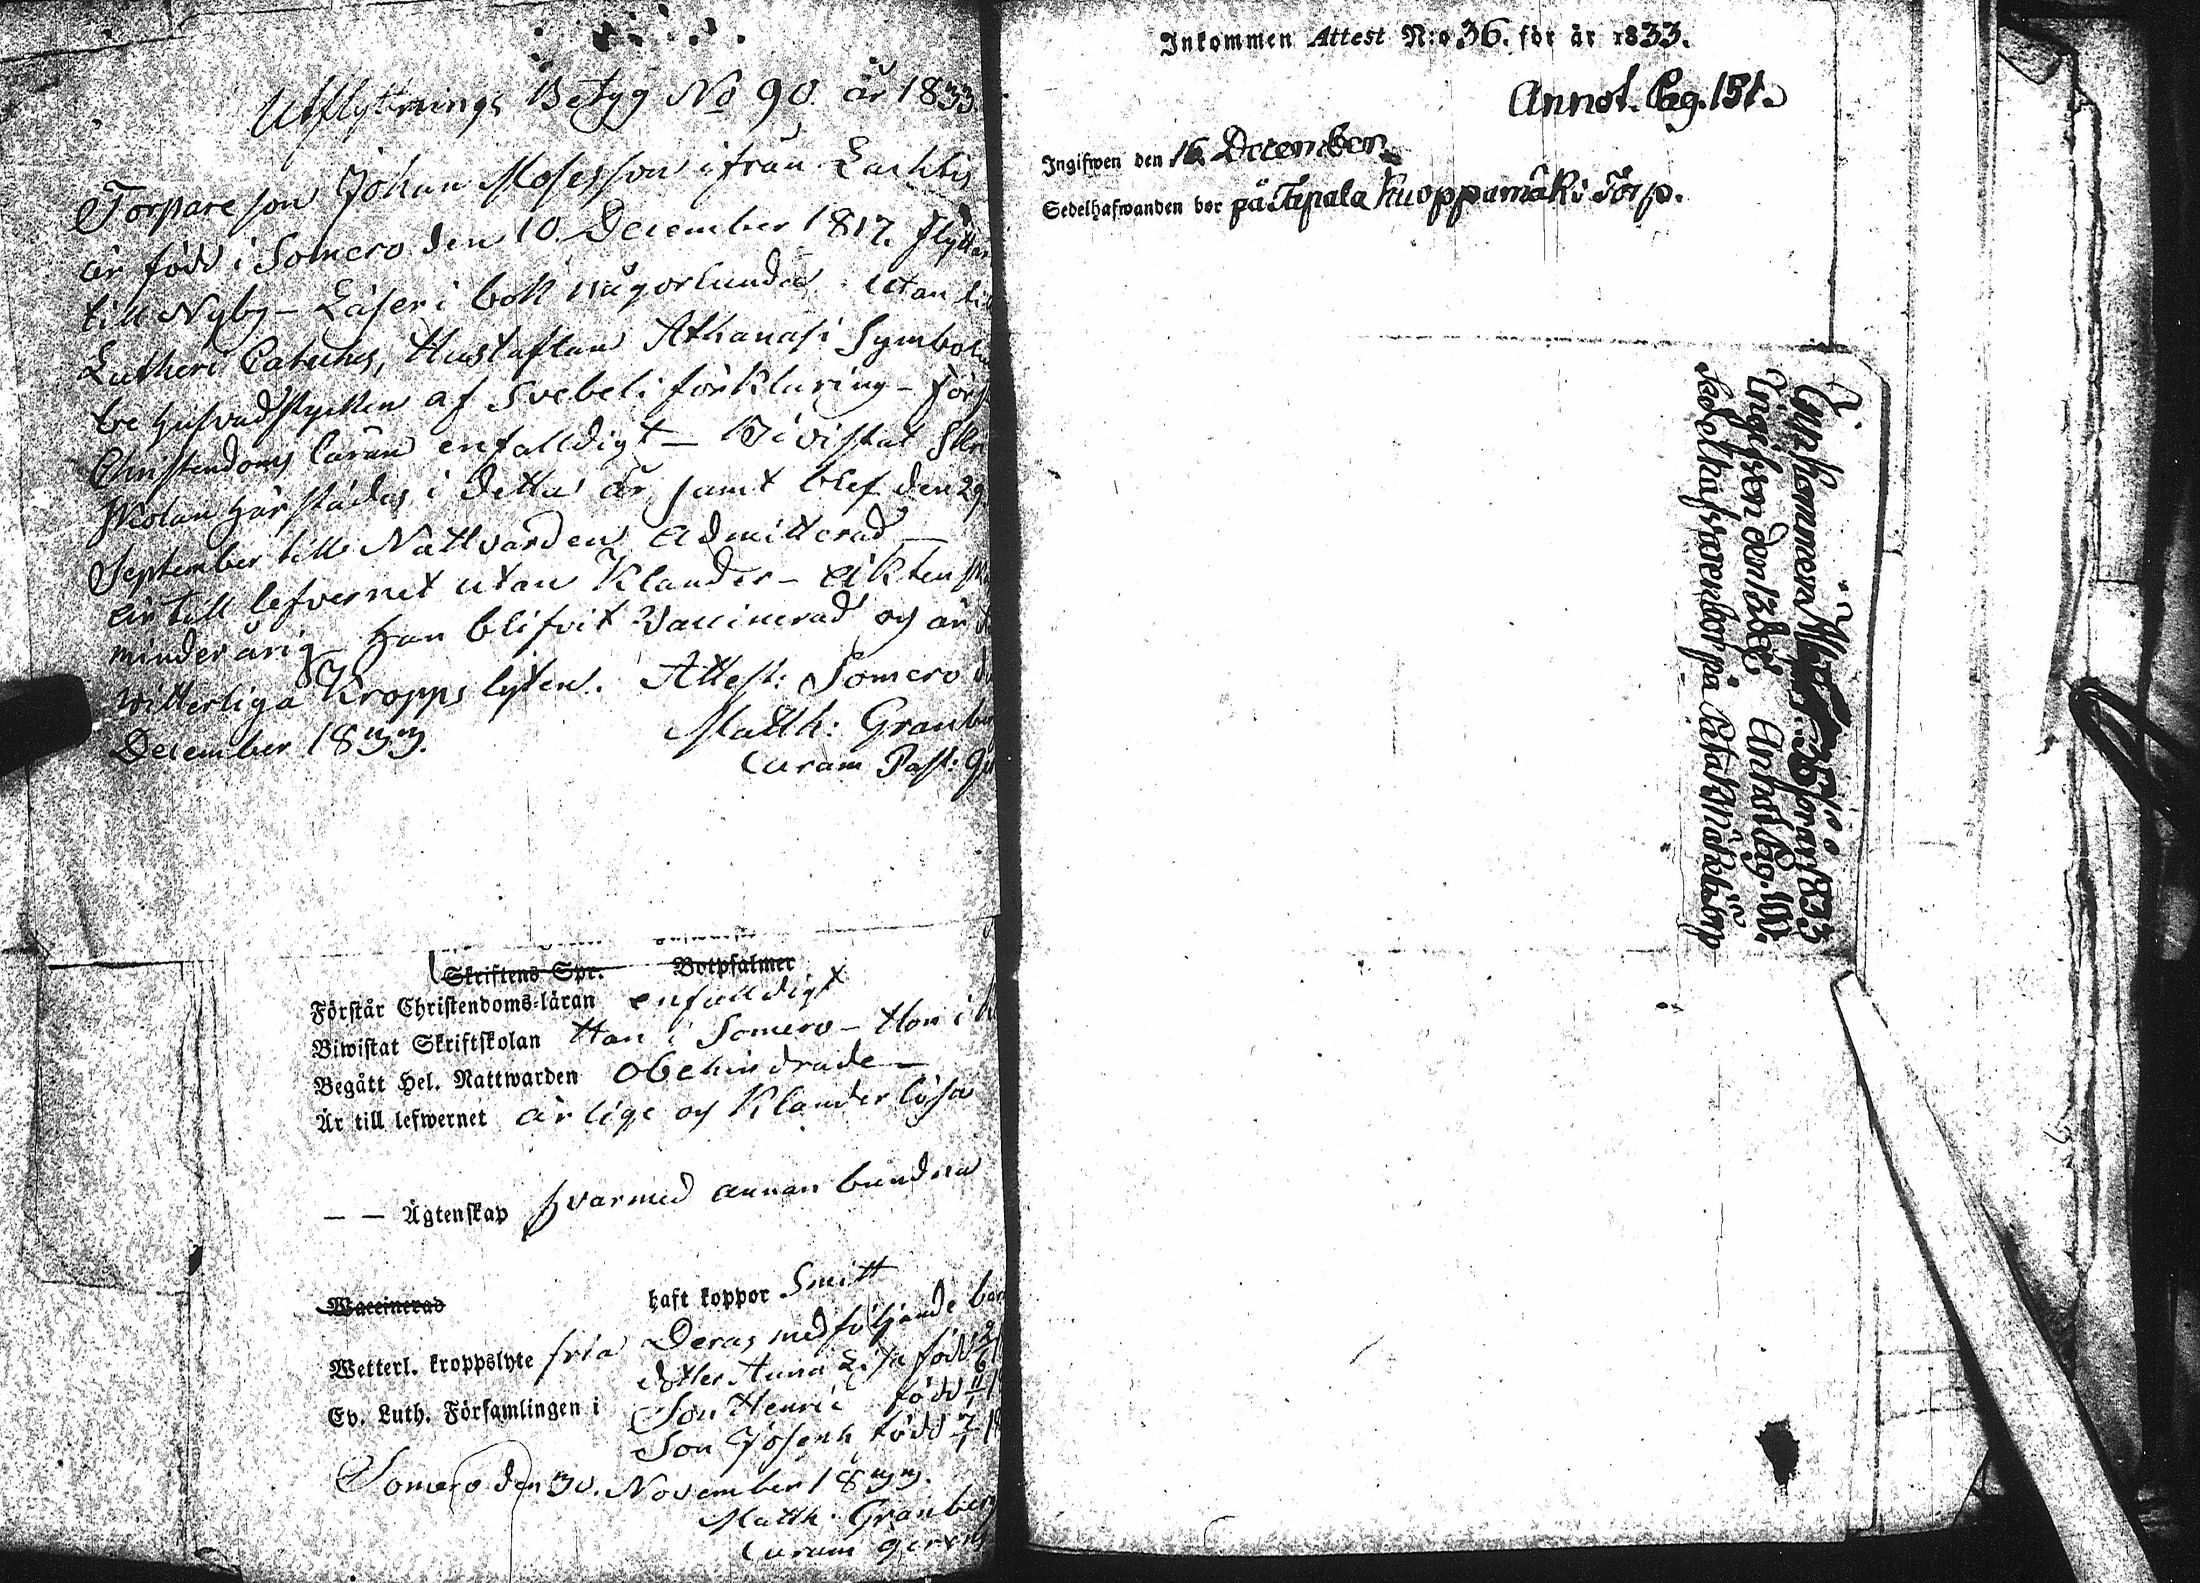 Utflyttnings Betyg No 90. år 1833.
Torpare son Johan Mosesson ifrån Lachtis
är född i Somero den 10. December 1817. flyttar
till Nyby – Läser i bok någorlunda. Utan
Lutheri Cateches, Hustaflan Athanasi Symbolum
be hufvudstycken af Svebeli förklaring – Förstår
Christendoms läran enfalldigt – Bivistat
skolan härstädes i detta år samt blef den 29
September till Nattvarden admitterad –
är till lefvernet utan Klander –
minderårig – Han blifvit Vaccinerad och är
witterliga Kropps lyten. Attest: Somero
December 1833.
Matth: Granberg
Curam Past: 
Skriftens Spr. Botpsalmer
Förstår Christendoms-läran enfalldigt
Biwistat Skriftskolan Han i Somero – Hon i
Begått Hel. Nattwarden obehindrade –
Är till lefwernet ärlige och Klanderlösa
— — Ägtenskap hvarmed annan bundna
Waccinerad haft koppor Smitt
Wetterl. kroppslyte fria Deras medföljande barn
dotter Anna Lisa född
Ev. Luth. Församlingen i Son Henric född
Son Joseph född
Somero den 30. November 1833.
Matth. Granberg
Curam gerens
Inkommen Attest N:o 36. för år 1833.
Annot. Pag. 151.
Ingifwen den 16 December
Sedelhafwanden bor på Tipala Kuoppamäki Torp.
Inkommen 36 för år 1833
Ingifven den Annot. Pag.
Sedelhafvaren bor på by